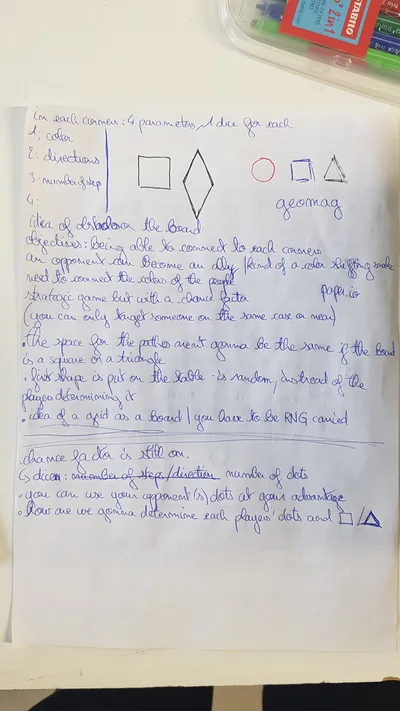 STABILO
2 in 1
in each corners : 4 parameters, 1 dice for each
1: color
2: directions
3: number of step
4:
geomag
idea of obstacles on the board
objectives: being able to connect to each corners
an opponent can become an ally / kind of a color shifting snake
need to connect the colors of the people
strategic game but with a chance factor
paper.io
(you can only target someone on the same case or near)
• the space for the pathes arent gonna be the same if the board
is a square or a triangle
• first shape is put on the table is random, instread of the
players determining it
• idea of a grid as a board / you have to be RNG carried
• chance factor is still on.
↳ dice: number of steps / direction number of dots
• you can use your opponent(s) dots at your advantage
• How are we gonna determine each players' dots and